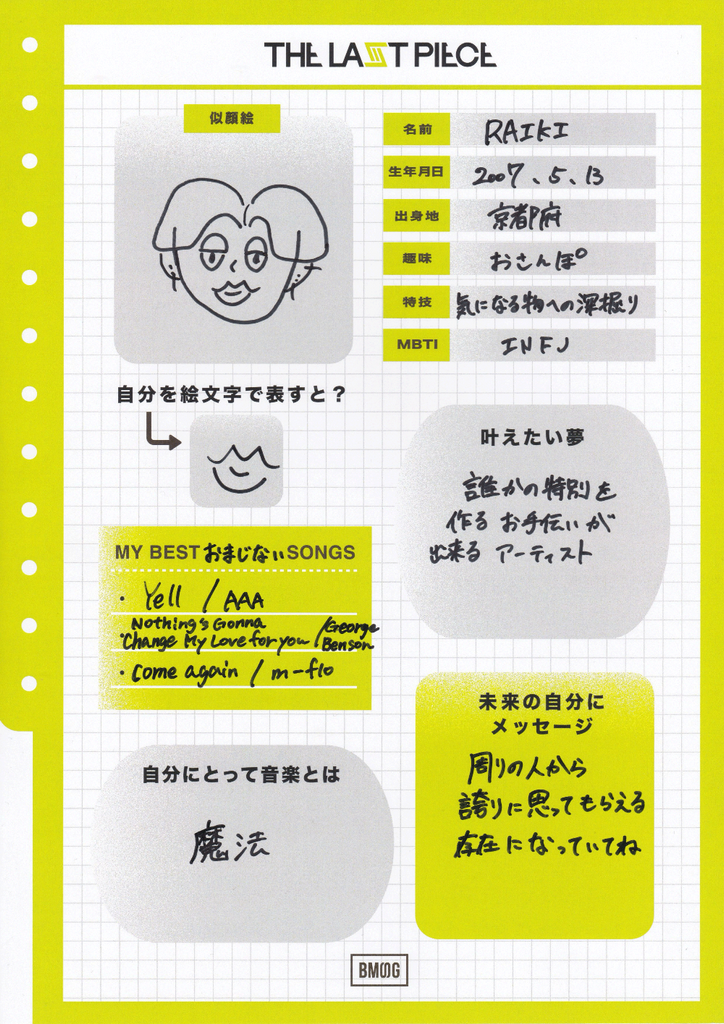 THE LAST PIECE
似顔絵
名前 RAIKI
生年月日 2007、5、13
出身地 京都府
趣味 おさんぽ
特技 気になる物への深掘り
MBTI INFJ
自分を絵文字で表すと？
叶えたい夢
誰かの特別を
作る お手伝いが
出来る アーティスト
MY BESTおまじないSONGS
・Yell / AAA
・Nothing's Gonna
Change My Love for you / George
Benson
・Come again / m-flo
未来の自分に
メッセージ
周りの人から
誇りに思ってもらえる
存在になっていてね
自分にとって音楽とは
魔法
BMSG